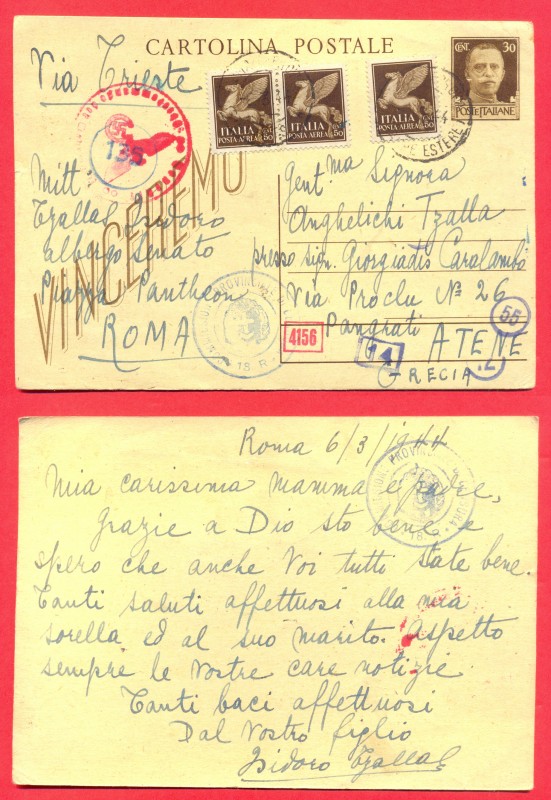 CARTOLINA POSTALE
CENT. 30
POSTE ITALIANE
Via Trieste
ITALIA
POSTA AEREA
CENT 50
ITALIA
POSTA AEREA
CENT 50
ITALIA
POSTA AEREA
CENT 50
ESTERE
135
VINCEREMO
Mitt.
Tzallas Isidoro
albergo Senato
Piazza Pantheon
ROMA
Gent.ma Signora
Anghelichi Tzalla
presso sign. Giorgiadis Caralambo
Via Proclu Nº 26
Pangrati ATENE
GRECIA
PROVINCIALE
18. R.
4156
14
55
12
Roma 6/3/1944
PROVINCIALE
18. R.
Mia carissima mamma e padre,
Grazie a Dio sto bene e
spero che anche Voi tutti state bene.
Tanti saluti affettuosi alla mia
sorella ed al suo marito. Aspetto
sempre le Vostre care notizie
Tanti baci affettuosi
Dal Vostro figlio
Isidoro Tzallas